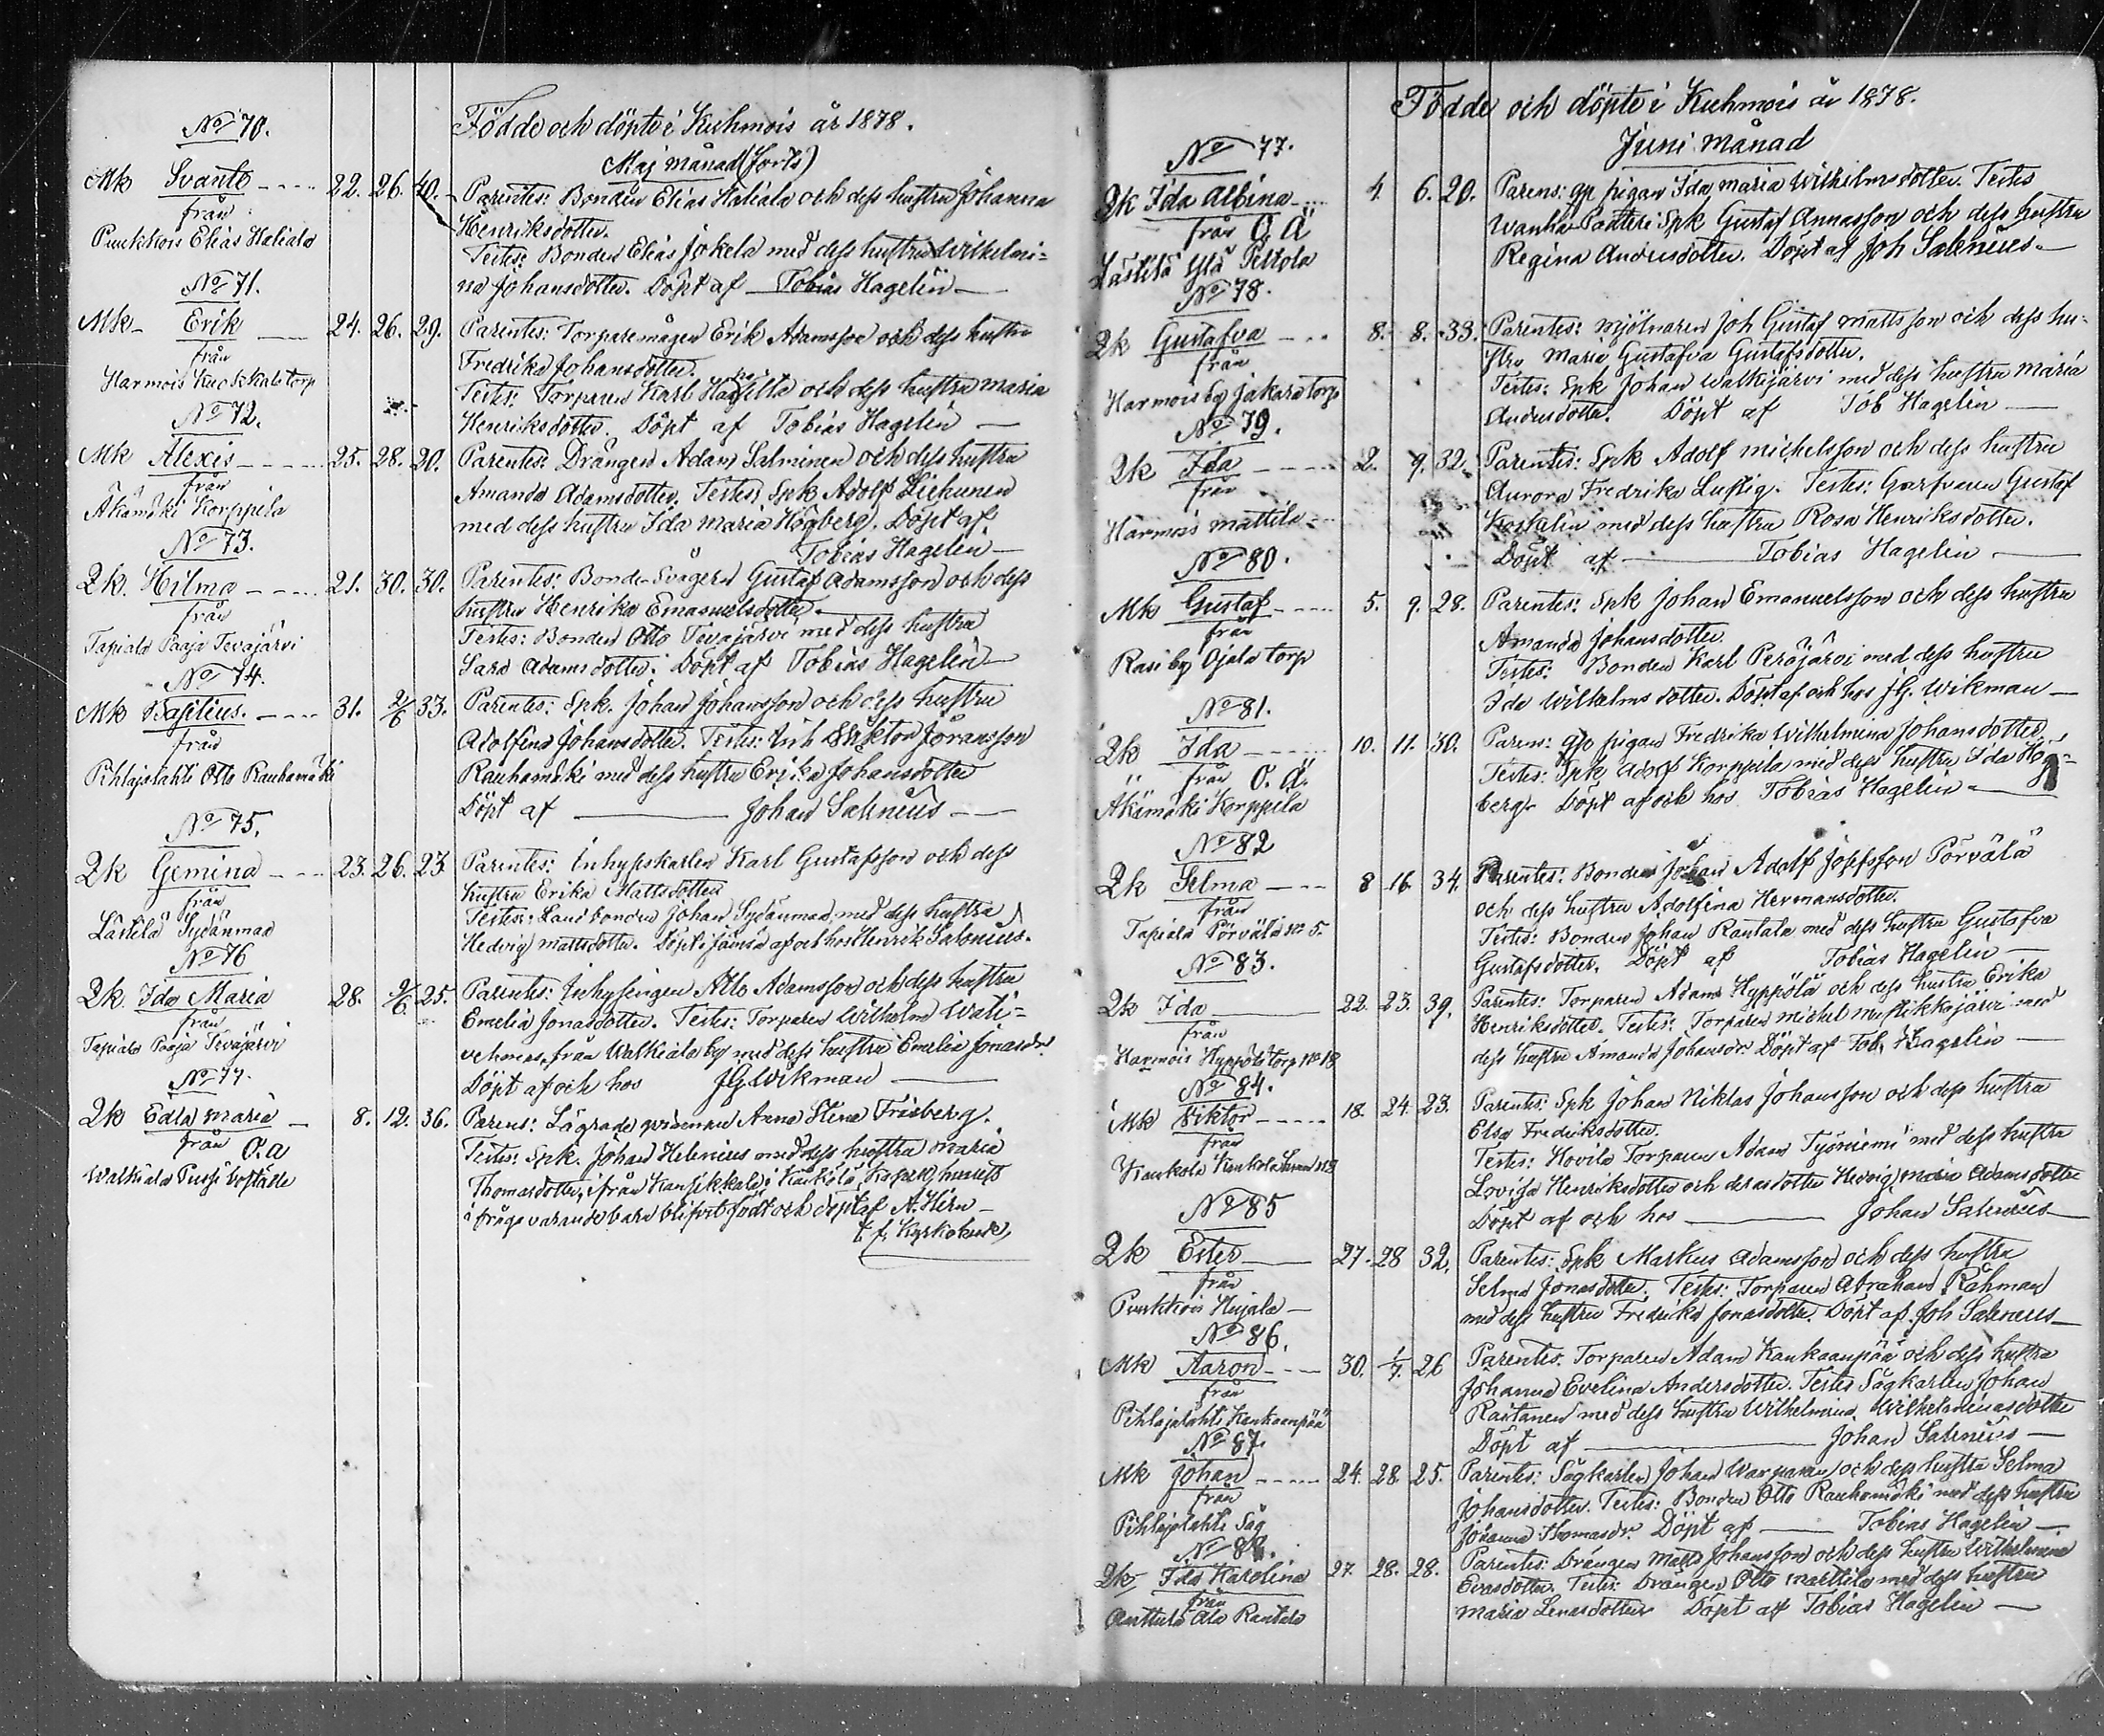 Födde och döpte i Kuhmois år 1878.
Maj månad (forts)
No 70.
Mk Svante 22. 26. 40. Parentes: Bonden Elias Haliala och dess hustru Johanna
från Henriksdotter.
Puukkois Elias Haliala Testes: Bonden Elias Jokela med dess hustru Wilhelmi-
na Johansdotter. Döpt af Tobias Hagelin
No 71.
Mk Erik 24. 26. 29. Parentes: Torparemågen Erik Adamsson och dess hustru
från Fredrika Johansdotter.
Harmois Kuokkala torp Testes: Torparen Karl och dess hustru Maria
Henriksdotter. Döpt af Tobias Hagelin
No 72.
Mk Alexis 25. 28. 20. Parentes: Drängen Adam Salminen och dess hustru
från Amanda Adamsdotter. Testes: Spk Adolf Liehunen
Äkämäki Korppila med dess hustru Ida Maria Högberg. Döpt af
Tobias Hagelin
No 73.
Qk. Hilma 21. 30. 30. Parentes: Bonde-Svågern Gustaf Adamsson och dess
från hustru Henrika Emanuelsdotter.
Tapiala Paajo Tevajärvi Testes: Bonden Otto Tevajärvi med dess hustru
Sara Adamsdotter. Döpt af Tobias Hagelin
No 74.
Mk Basilius. 31. 2/6 33. Parentes: Spk. Johan Johansson och dess hustru
från Adolfina Johansdotter. Testes: Viktor Göransson
Pihlajalahti Otto Rauhamäki Rauhamäki med dess hustru Erika Johansdotter
Döpt af Johan Salenius
No 75.
Qk Gemina 23. 26. 23 Parentes: Inhyskarlen Karl Gustafsson och dess
från hustru Erika Mattsdotter
Lästilä Sydänmaa Testes: Landbonden Johan Sydänmaa med dess hustru
Hedvig Mattsdotter. Döpt i Jämsä af och hos Henrik Salonius.
No 76
Qk. Ida Maria 28. 2/6. 25. Parentes: Inhysingen Otto Adamsson och dess hustru
från Emelia Jonasdotter. Testes: Torparen Wilhelm Wati-
Tapiala Paajo Tevajärvi vehmas, från Walkiala by med dess hustru Emelia Jonasdr.
Döpt af och hos J G Wikman
No 77.
Qk Edla Maria 8. 12. 36. Parens: Lägrade qvinnan Anna Stina Frisberg.
från O. ä Testes: Spk. Johan Helenius med dess hustru Maria
Walkiala Thomasdotter, ifrån Kansikkala i Kärkölä Kapell, hvarest
i fråga varande barn blifvit född och döpt af A. Hirn
t. f. Kyrkoherde
Födde och döpte i Kuhmois år 1878.
Juni Månad
No 77.
Qk Ida Albina 4. 6. 20. Parens: ogp pigan Ida Maria Wilhelmsdotter. Testes
från O. Ä Wanha Spk Gustaf Annasson och dess hustru
Lästilä Ylä Pertola Regina Andersdotter. Döpt af Joh Salenius
No 78.
Qk Gustafva 8. 8. 33. Parentes: Mjölnaren Joh Gustaf Mattsson och dess hu-
från stru Maria Gustafva Gustafsdotter.
Harmois by Jakara torp Testes: Spk Johan Walkijärvi med dess hustru Maria
Andersdotter. Döpt af Tob Hagelin
No 79.
Qk Ida 2. 9. 32. Parentes: Spk Adolf Mickelsson och dess hustru
från Aurora Fredrika Lustig. Testes: Garfvaren Gustaf
Harmois Mattila med dess hustru Rosa Henriksdotter.
Döpt af Tobias Hagelin
No 80.
Mk Gustaf 5. 9. 28. Parentes: Spk Johan Emanuelsson och dess hustru
från Amanda Johansdotter.
Rasi by Ojala torp Testes: Bonden Karl Peräjärvi med dess hustru
Ida Wilhelmsdotter. Döpt af och hos J G. Wikman
No 81.
Qk Ida 10. 11. 30. Parens: ogp pigan Fredrika Wilhelmina Johansdotter,
från O. Ä. Testes: Spk Adolf Korppila med dess hustru Ida Hög-
Äkämäki Korppila berg. Döpt af och hos Tobias Hagelin
No 82
Qk Selma 8 16. 34. Parentes: Bonden Johan Adolf Josefsson Pörvälä
från och dess hustru Adolfina Hermansdotter.
Tapiala Pörvälä No 5. Testes: Bonden Johan Rantala med dess hustru Gustafva
Gustafsdotter. Döpt af Tobias Hagelin
No 83.
Qk Ida 22. 23. 39. Parentes: Torparen Adam Hyppölä och dess hustru Erika
från Henriksdotter. Testes: Torparen Michel Mustikkajärvi med
Harmois Hyppölä torp No 18 dess hustru Amanda Johansdr. Döpt af Tob. Hagelin
No 84.
Mk Viktor 18. 24. 23. Parentes: Spk Johan Niklas Johansson och dess hustru
från Elsa Fredriksdotter.
Kaukola Testes: Hovila Torparen Adam Tyyniemi med dess hustru
Lovisa Henriksdotter och deras dotter Hedvig Maria Adamsdotter
Döpt af och hos Johan Salenius
No 85
Qk Ester 27. 28 32. Parentes: Spk Markus Adamsson och dess hustru
från Selma Jonasdotter. Testes: Torparen Abraham Råhman
Puukkois Heijala med dess hustru Fredrika Jonasdotter. Döpt af Joh Salenius
No 86.
Mk Aaron 30. 1/7. 26 Parentes: Torparen Adam Kankaanpää och dess hustru
från Johanna Evelina Andersdotter. Testes Sågkarlen Johan
Pihlajalahti Kankaanpää Rastanen med dess hustru Wilhelmina Wilhelminasdotter
Döpt af Johan Salenius
No 87.
Mk Johan 24. 28. 25. Parentes: Sågkarlen Johan Warpanen och dess hustru Selma
från Johansdotter. Testes: Bonden Otto Rauhamäki med dess hustru
Pihlajalahti Såg Johanna Thomasdr. Döpt af Tobias Hagelin
No 88.
Qk Ida Karolina 27. 28. 28. Parentes: Drängen Matts Johansson och dess hustru Wilhelmina
från Evasdotter. Testes: Drängen Otto Marttila med dess hustru
Anttula Ala Rantala Maria Lenasdotter Döpt af Tobias Hagelin